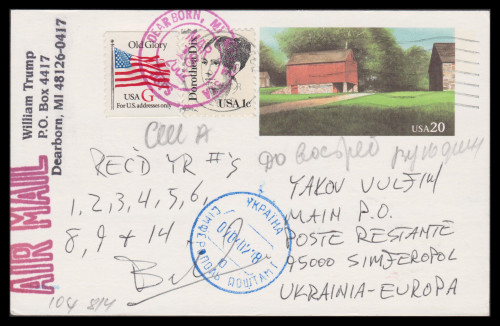 William Trump
P.O. Box 4417
Dearborn, MI 48126-0417
AIR MAIL
Old Glory
USA G
For U.S. addresses only
Dorothea Dix
USA 1c
DEARBORN, MI
USA 20
Cell A
REC'D YR #'S
1, 2, 3, 4, 5, 6,
8, 9 + 14
Bill
до
YAKOV VULFIN
MAIN P.O.
POSTE RESTANTE
95000 SIMFEROPOL
UKRAINIA-EUROPA
УКРАЇНА
СІМФЕРОПОЛЬ
ПОШТАМТ
104 814